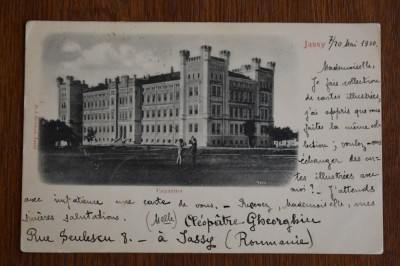 Jassy 7/20 Mai 1900.
Mademoiselle,
Je fais collection
de cartes illustrées,
j'ai appris que vous
faites la même col-
lection; voulez-vous
échanger des car-
tes illustrées avec
moi? - J'attends
avec impatience une carte de vous. - Recevez, Mademoiselle, mes
sincères salutations. (Melle) Cléopâtre Gheorghiu
Rue Seulescu 8. - à Jassy (Roumanie)